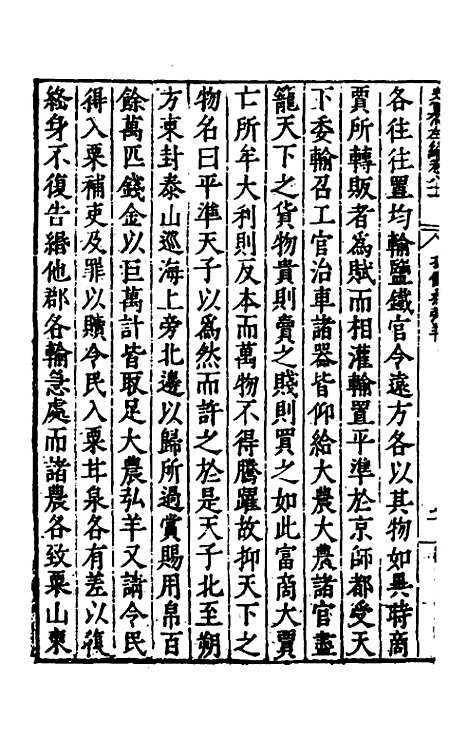 各往往置均輸鹽鐵官令遠方各以其物如異時商
賈所轉販者為賦而相灌輸置平準於京師都受天
下委輸召工官治車諸器皆仰給大農大農諸官盡
籠天下之貨物貴則賣之賤則買之如此富商大賈
亡所牟大利則反本而萬物不得騰躍故抑天下之
物名曰平準天子以為然而許之於是天子北至朔
方東封泰山巡海上旁北邊以歸所過賞賜用帛百
餘萬匹錢金以巨萬計皆取足大農弘羊又請令民
得入粟補吏及罪以贖令民入粟甘泉各有差以復
終身不復告緡他郡各輸急處而諸農各致粟山東